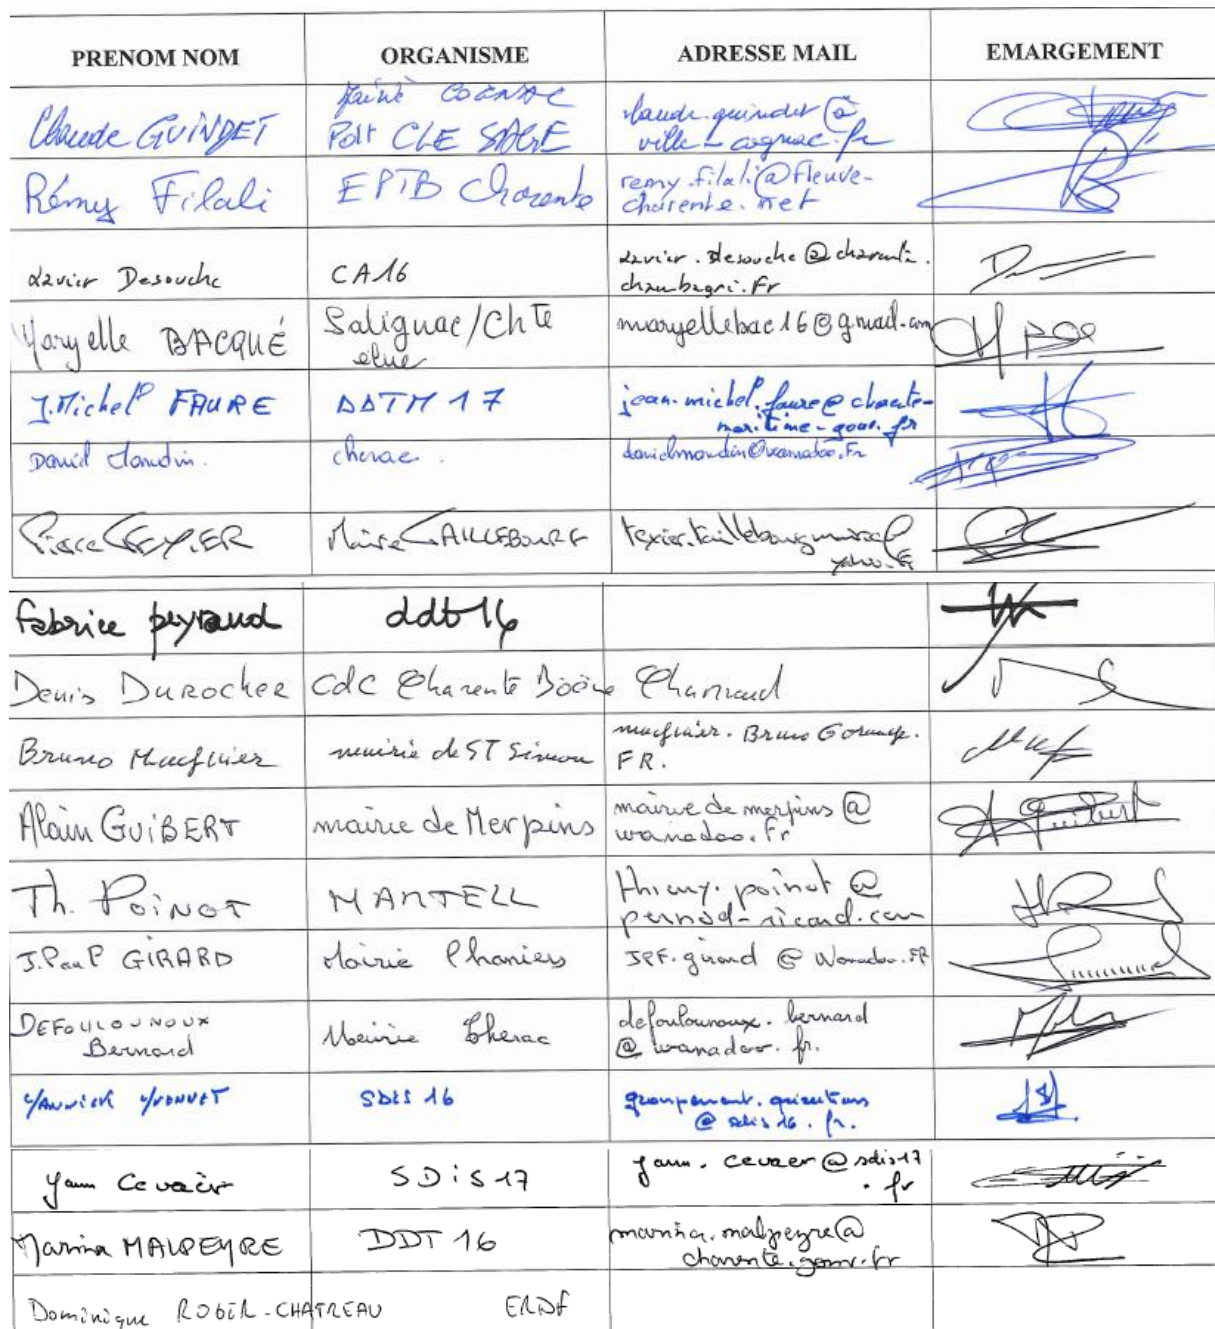 PRENOM NOM ORGANISME ADRESSE MAIL EMARGEMENT
Claude GUINDET Mairie COGNAC claude.guindet @
Pdt CLE SAGE ville-cognac.fr
Rémy Filali EPTB Charente remy.filali@fleuve-
charente.net
Xavier Desouche CA16 xavier.desouche@charente.
chambagri.Fr
Maryelle BACQUÉ Salignac/Chte maryellebac16@gmail.com
elue
J.Michel FAURE DDTM 17 jean-michel.faure@charente-
maritime.gouv.fr
cherac
Pierre TEXIER Mairie TAILLEBOURG
yahoo.fr
Fabrice peyraud ddt 16
Denis DUROCHER CdC Charente
Bruno mairie de ST Simon
FR.
Alain GUIBERT mairie de Merpins mairie de merpins @
wanadoo.fr
Th. POINOT MARTELL thierry.poinot @
pernod-ricard.com
J.Paul GIRARD Mairie Chaniers JPF.girard @ Wanadoo.FR
DEFOULOUNOUX Mairie Cherac defoulounoux.bernard
Bernard @ wanadoo.fr.
YANNICK SDIS 16
@ sdis16.fr.
Yann Cevaër SDiS 17 yann.cevaer@sdis17
.fr
Marina MALPEYRE DDT 16 marina.malpeyre@
charente.gouv.fr
Dominique ROGER-CHATREAU ERDF